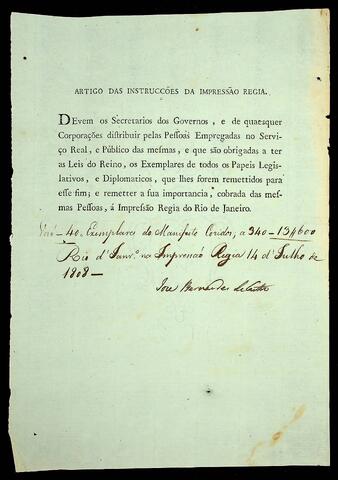 ARTIGO DAS INSTRUCCÕES DA IMPRESSÃO REGIA.
DEvem os Secretarios dos Governos, e de quaesquer
Corporações distribuir pelas Pessoas Empregadas no Servi-
ço Real, e Público das mesmas, e que são obrigadas a ter
as Leis do Reino, os Exemplares de todos os Papeis Legis-
lativos, e Diplomaticos, que lhes forem remettidos para
esse fim; e remetter a sua importancia, cobrada das mes-
mas Pessoas, á Impressão Regia do Rio de Janeiro.
40 Exemplares do Manifesto a 340 - 13$600
Rio d' Janr.º na Impressaõ Regia 14 d' Julho de
1808 -
Joze Bernardes de Castro